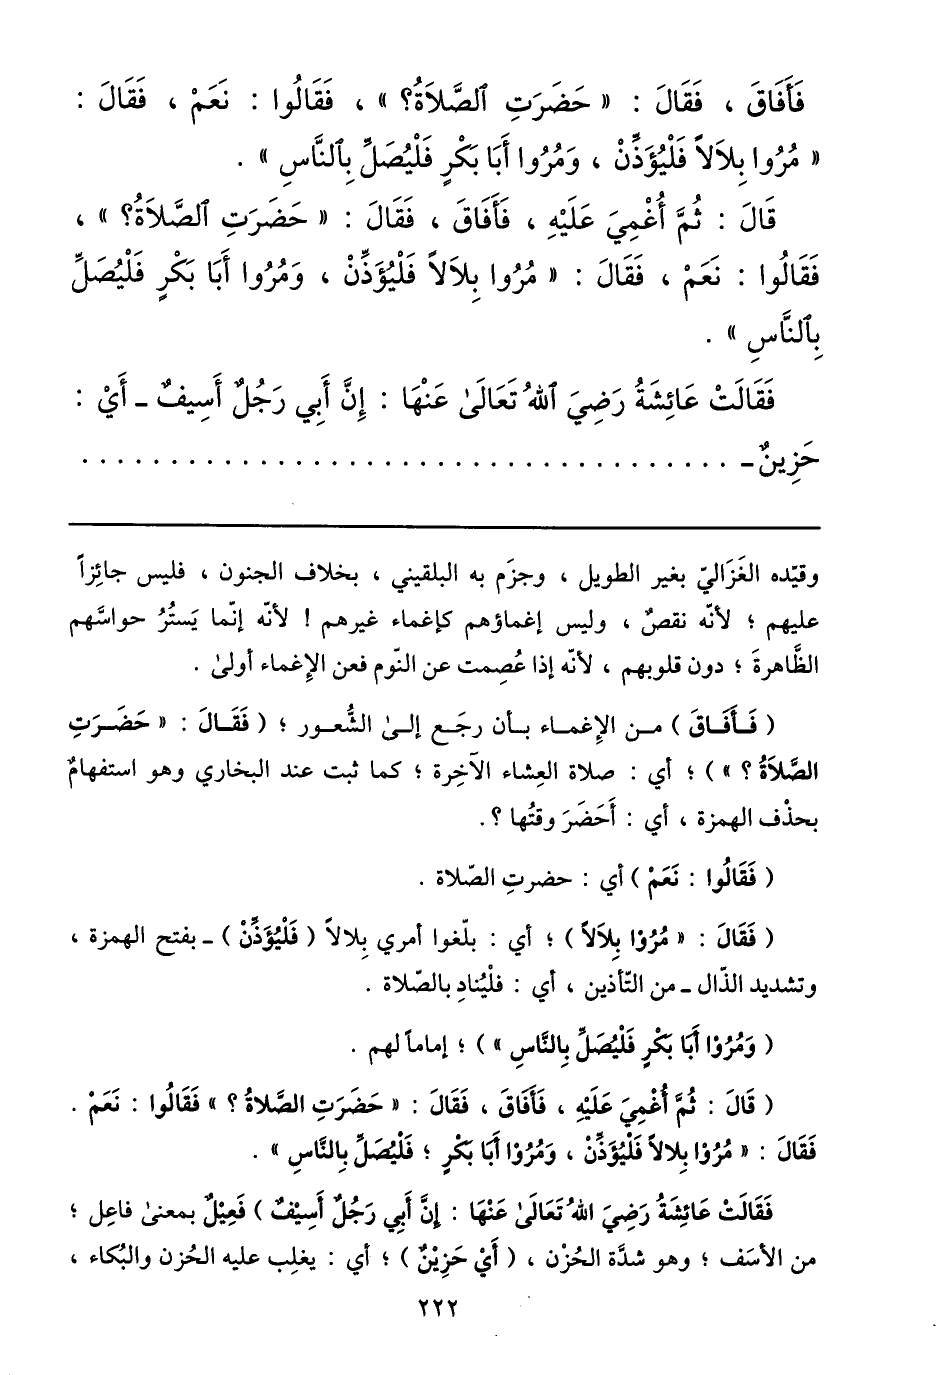 فَأَفَاقَ ، فَقَالَ : « حَضَرَتِ ٱلصَّلاَةُ؟ » ، فَقَالُوا : نَعَمْ ، فَقَالَ :
« مُرُوا بِلاَلاً فَلْيُؤَذِّنْ ، وَمُرُوا أَبَا بَكْرٍ فَلْيُصَلِّ بِٱلنَّاسِ » .
قَالَ : ثُمَّ أُغْمِيَ عَلَيْهِ ، فَأَفَاقَ ، فَقَالَ : « حَضَرَتِ ٱلصَّلاَةُ؟ » ،
فَقَالُوا : نَعَمْ ، فَقَالَ : « مُرُوا بِلاَلاً فَلْيُؤَذِّنْ ، وَمُرُوا أَبَا بَكْرٍ فَلْيُصَلِّ
بِٱلنَّاسِ » .
فَقَالَتْ عَائِشَةُ رَضِيَ ٱللهُ تَعَالَىٰ عَنْهَا : إِنَّ أَبِي رَجُلٌ أَسِيفٌ ـ أَيْ :
حَزِينٌ ـ . . . . . . . . . . . . . . . . . . . . . . . . . . . . . . . . . . . . .
وقيّده الغَزَاليّ بغير الطويل ، وجزَم به البلقيني ، بخلاف الجنون ، فليس جائِزاً
عليهم ؛ لأنّه نقصٌ ، وليس إغماؤهم كإغماء غيرهم ! لأنّه إنّما يَستُرُ حواسَّهم
الظَّاهرةَ ؛ دون قلوبهم ، لأنّه إذا عُصِمت عن النّوم فعن الإغماء أولىٰ .
( فَـأَفَـاقَ ) مـن الإغمـاء بـأن رجَـع إلـىٰ الشُّعـور ؛ ( فَقَـالَ : « حَضَـرَتِ
الصَّلاَةُ ؟ » ) ؛ أي : صلاة العِشاء الآخِرة ؛ كما ثبت عند البخاري وهو استفهامٌ
بحذْف الهمزة ، أي : أَحَضَرَ وقتُها ؟ .
( فَقَالُوا : نَعَمْ ) أي : حضرتِ الصّلاة .
( فَقَالَ : « مُرُوْا بِلاَلاً ) ؛ أي : بلّغوا أمري بِلالاً ( فَلْيُؤَذِّنْ ) ـ بفتح الهمزة ،
وتشديد الذّال ـ من التّأذين ، أي : فلْيُنادِ بالصّلاة .
( وَمُرُوْا أَبَا بَكْرٍ فَلْيُصَلِّ بِالنَّاسِ » ) ؛ إماماً لهم .
( قَالَ : ثُمَّ أُغْمِيَ عَلَيْهِ ، فَأَفَاقَ ، فَقَالَ : « حَضَرَتِ الصَّلاةُ ؟ » فَقَالُوا : نَعَمْ .
فَقَالَ : « مُرُوْا بِلالاً فَلْيُؤَذِّنْ ، وَمُرُوْا أَبَا بَكْرٍ ؛ فَلْيُصَلِّ بِالنَّاسِ » .
فَقَالَتْ عَائِشَةُ رَضِيَ اللهُ تَعَالَىٰ عَنْهَا : إِنَّ أَبِي رَجُلٌ أَسِيْفٌ ) فَعِيْلٌ بمعنىٰ فاعِل ؛
من الأسَف ؛ وهو شدَّة الحُزْن ، ( أَيْ حَزِيْنٌ ) ؛ أي : يغلِب عليه الحُزن والبُكاء ،
٢٢٢